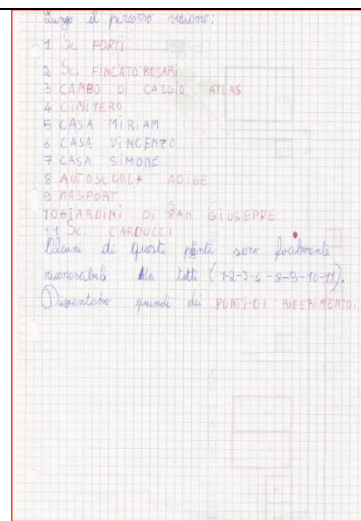 Lungo il percorso vediamo:
1 Sc. FORTI
2 Sc. FINCATO ROSARI
3 CAMBO DI CALCIO ATLAS
4 CIMITERO
5 CASA MIRIAM
6 CASA VINCENZO
7 CASA SIMONE
8 AUTOSCUOLA ADIGE
9 MASPORT
10 GIARDINI DI SAN GIUSEPPE
11 Sc. CARDUCCI
Alcuni di questi punti sono facilmente
riconoscibili da tutti (1-2-3-4-8-9-10-11).
Diventano quindi dei PUNTI DI RIFERIMENTO.